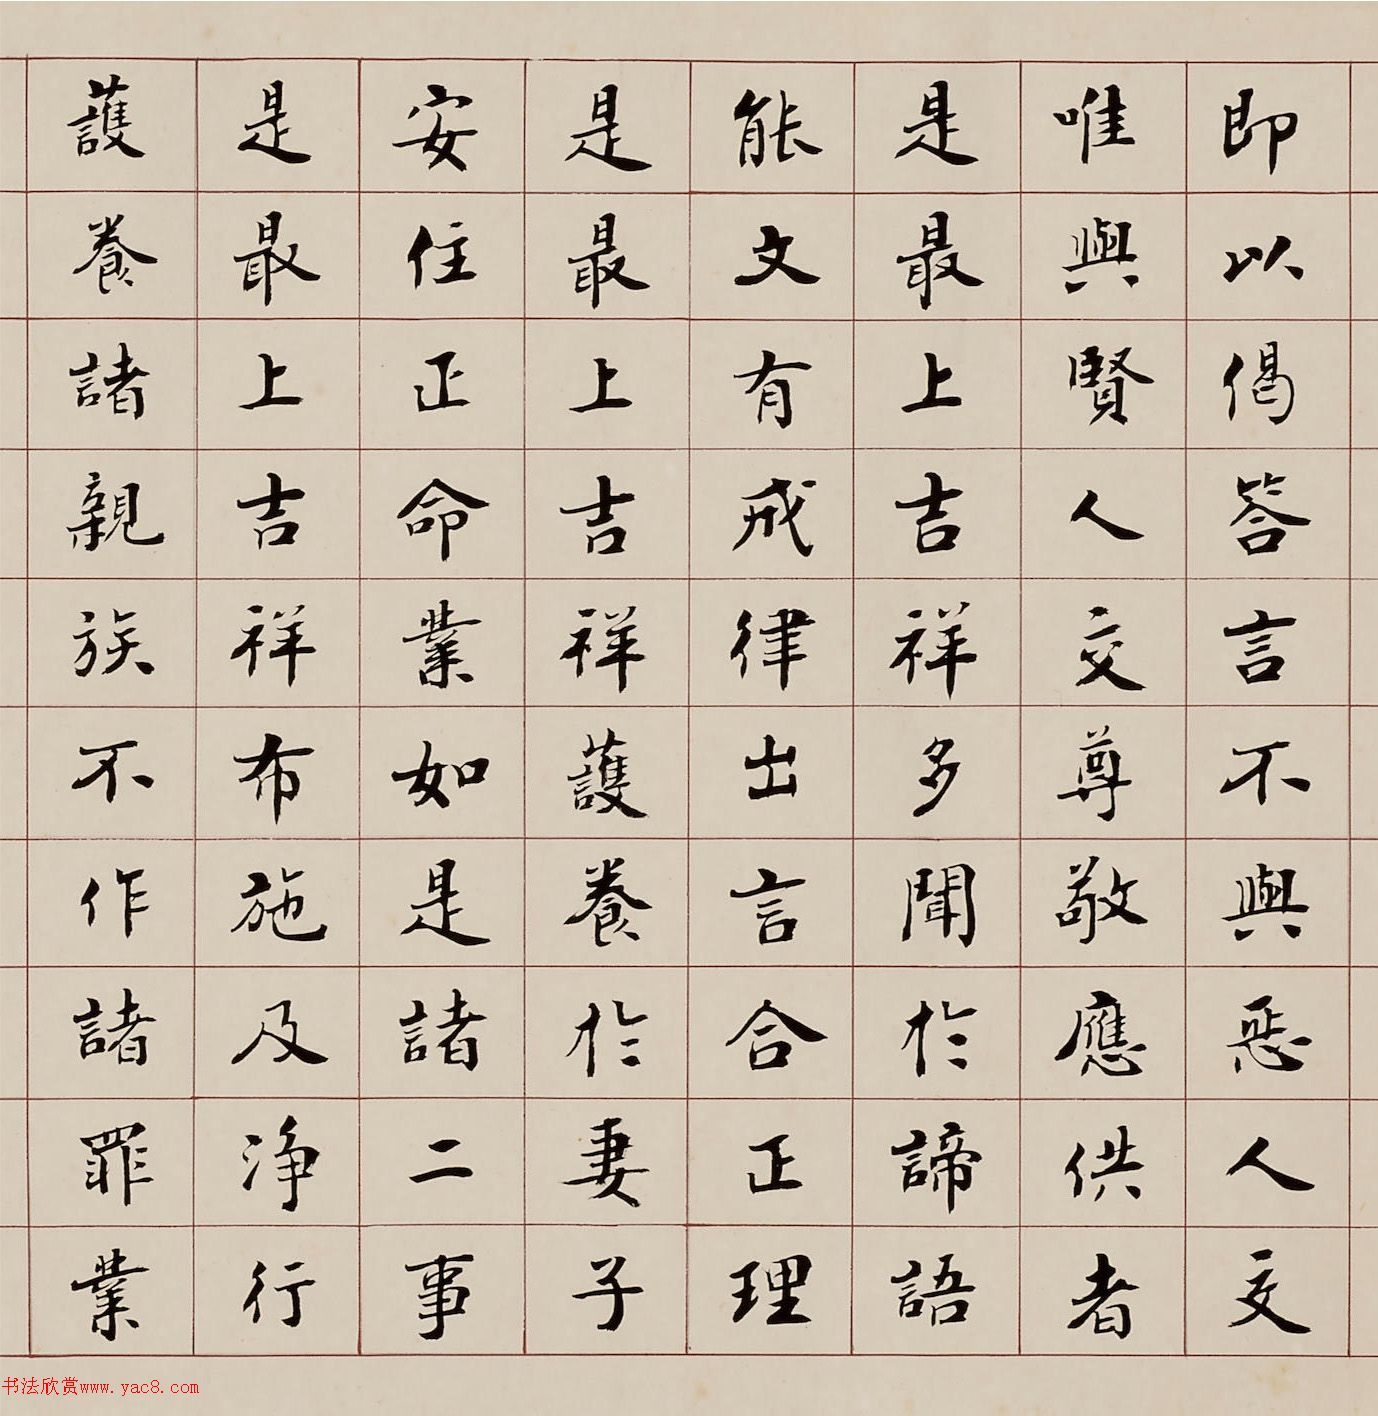 即以偈答言不與惡人交
唯與賢人交尊敬應供者
是最上吉祥多聞於諦語
能文有戒律出言合正理
是最上吉祥護養於妻子
安住正命業如是諸二事
是最上吉祥布施及淨行
護養諸親族不作諸罪業
书法欣赏www.yac8.com